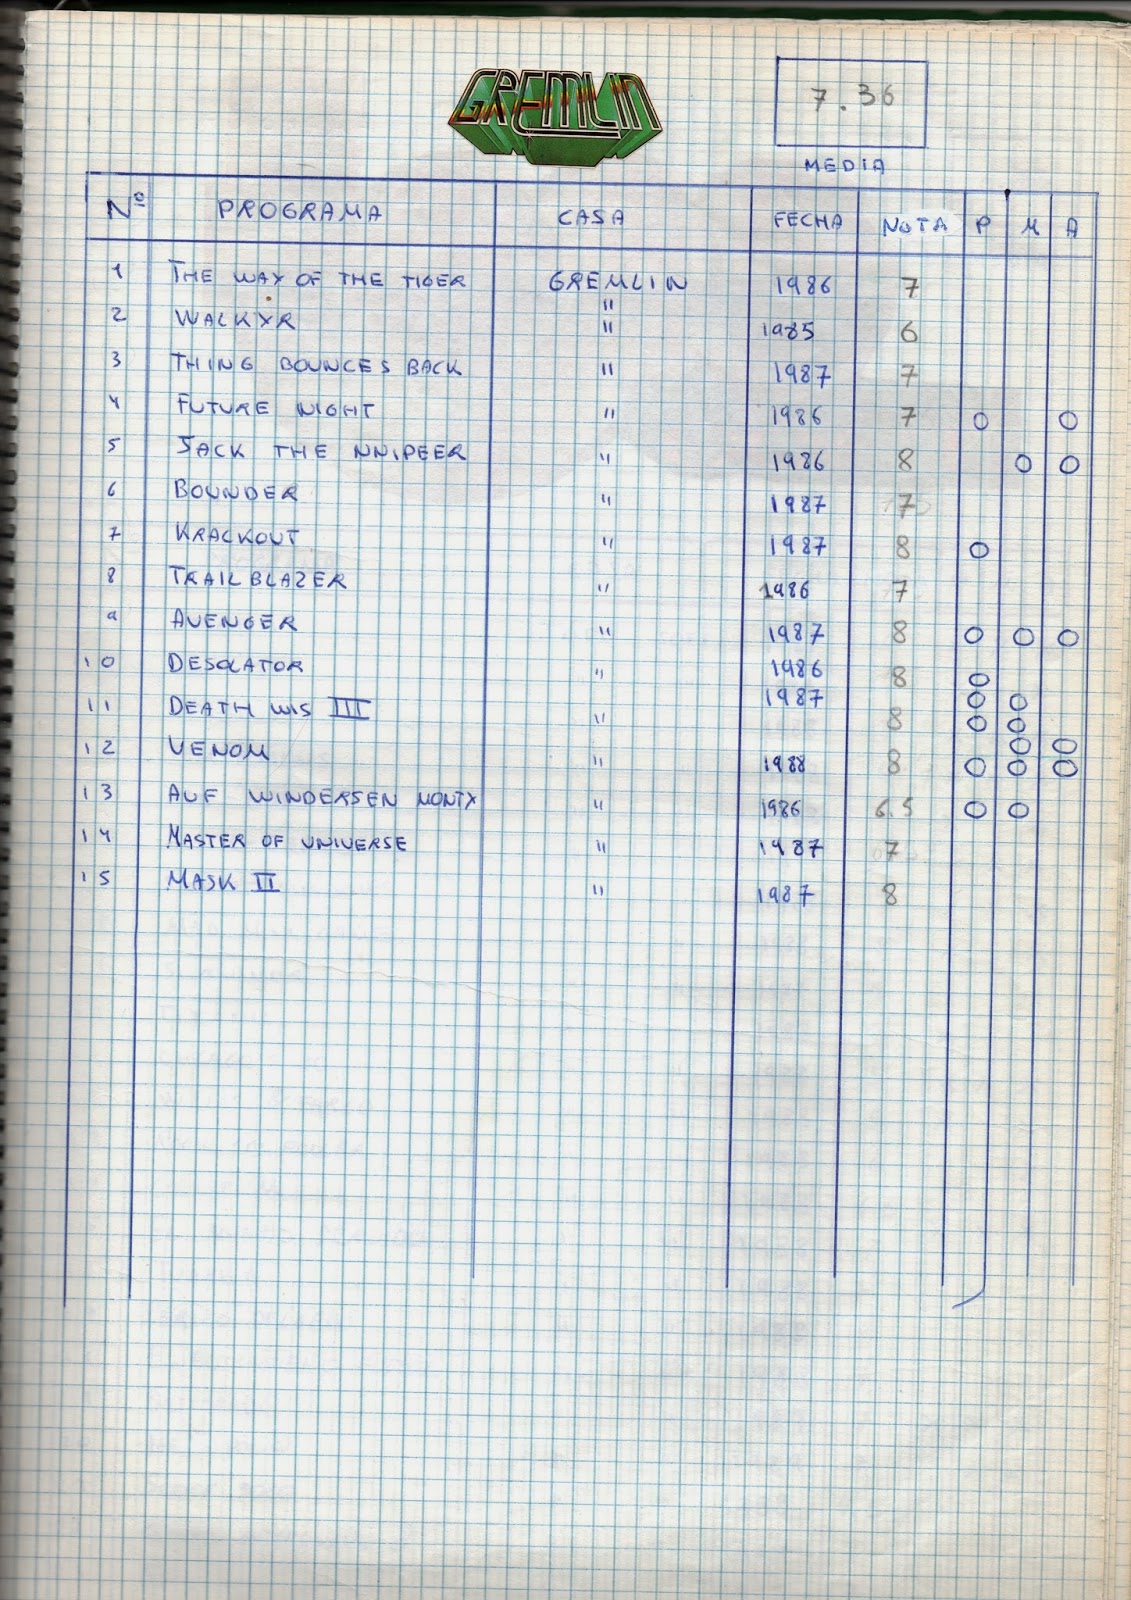 GREMLIN
7.36
MEDIA
Nº PROGRAMA CASA FECHA NOTA P M A
1 THE WAY OF THE TIGER GREMLIN 1986 7
"
2 WALKYR " 1985 6
3 THING BOUNCES BACK " 1987 7
4 FUTURE NIGHT " 1986 7 O O
5 JACK THE NNIPEER " 1986 8 O O
6 BOUNDER " 1987 7
7 KRACKOUT " 1987 8 O
8 TRAILBLAZER " 1986 7
9 AVENGER " 1987 8 O O O
10 DESOLATOR " 1986 8 O
11 DEATH WIS III " 1987 8 O O
O O
12 VENOM " 1988 8 O O
O O O
13 AUF WINDERSEN MONTY " 1986 6.5 O O
14 MASTER OF UNIVERSE " 1987 7
15 MASK II " 1987 8